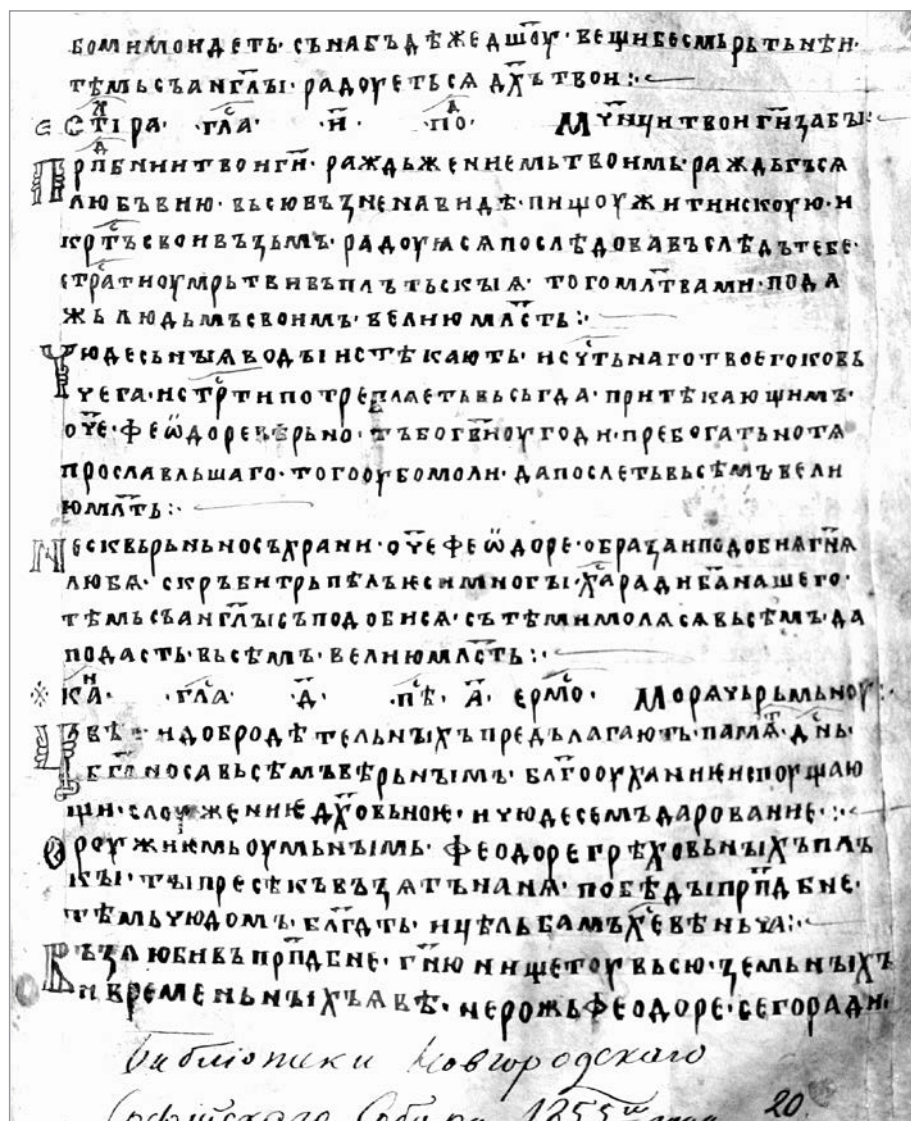 бомимоидеть· сънабъдѣжедш҃оу· вещибесмьрьтьнѣи·
тѣмьсъанг҃лы· радоуетьсѧ дх҃ътвои:·
стⷯіра· глⷭ҇а· и҃· поⷣ· Мч҃нцитвоиг҃изабы:·
Прⷣпбниитвоиг҃и· раждьжениемьтвоимь· раждьгъсѧ
любъвию· вьсювъзненавидѣ· пищоужитиискоую· и
крⷭ҇тъсвоивъзьмъ· радоуꙗсѧпослѣдовавъслѣдътебе·
стрⷭ҇атиоумрьтвивъплътьскыѧ· тогомл҃твами· пода
жьлюдьмъсвоимъ· велиюмлⷭ҇ть:·
Чюдесьныѧводыистѣкають· исчⷭ҇тьнаготвоегоковь
чега· истрⷭ҇типотреплѧетьвьсьгда· притѣкающимъ·
оч҃е· феѡдоревѣрьно· тъбогв҃иоугоди· пребогатьнотѧ
прославльшаго· тогооубомоли· дапослетьвьсѣмъвели
юмл҃ть:·
Несквьрьньносъхрани· оч҃е феѡдоре· образаиподобиѧг҃нѧ
любѧ· скръбитрьпѣлъѥсимногы· хⷭ҇арадиб҃анашего·
тѣмьсъанг҃лысъподобисѧ· сътѣмимолѧсѧвьсѣмъ· да
подасть· вьсѣмъ· велиюмлⷭ҇ть:·
каⷩ· глⷭ҇а· д҃· пѣⷭ҇· а҃· ермⷭ҇о· Морѧчьрьмьноу:·
Цвѣ· идобродѣтельныхъпредълагають· памѧⷮ· дⷭ҇нь·
бг҃оносавьсѣмъвѣрьнымъ· бл҃гооуханиѥиспоущаю
щи· слоужениѥдх҃овьноѥ· ичюдесемъдарование:·
Ороужиемьоумьнымь· феодорегрѣховьныхъплъ
кы· тыпресѣкъвъзѧтънанѧ· побѣдыпрп҃дбне·
тѣмьчюдомъ· бл҃гдть· ицѣльбамъхⷭ҇евѣньча:·
Възлюбивъпрп҃дбне· г҃нюнищетоувьсю· земьныхъ
ивременьныхъꙗвѣ· нерожьфеодоре· сегоради·
библіотеки Новгородскаго
Софійскаго Собора 1855ᵍᵒ года 20